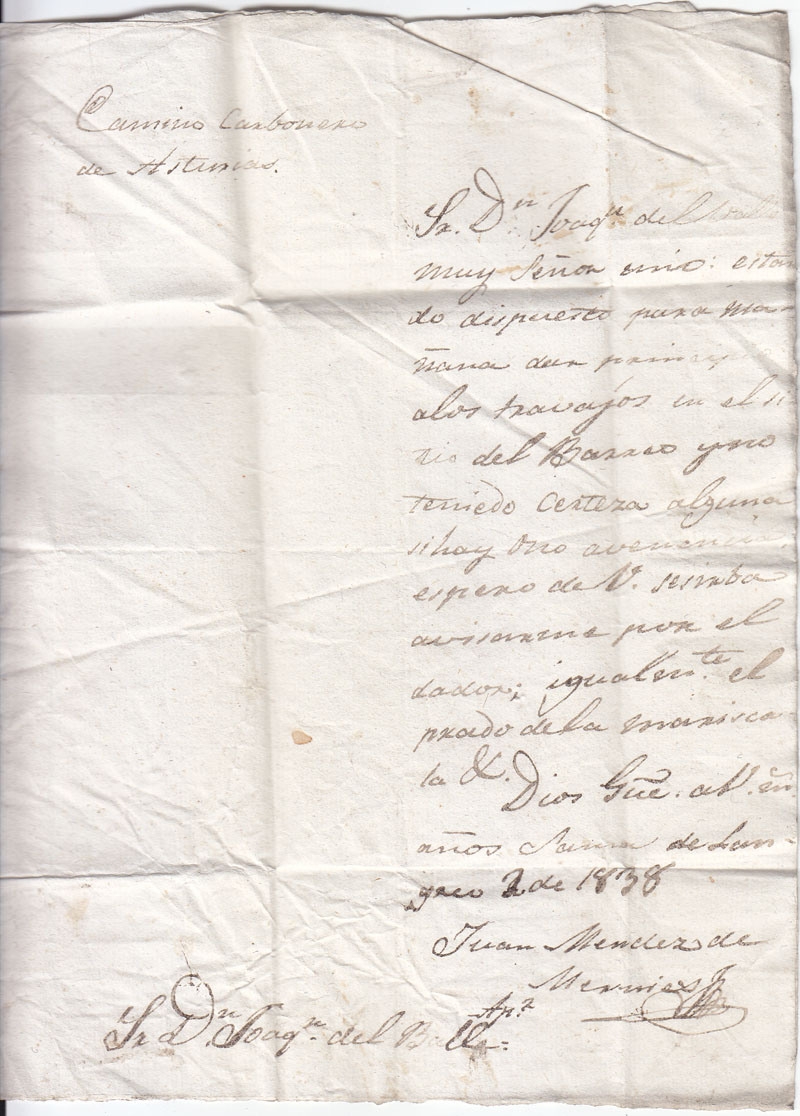 Camino Carbonero
de Asturias.
Sr. Dn Joaqn del Valle
muy Señor mio: estan
do dispuesto para ma-
ñana dar principio
alos travajos en el si
tio del Barreo yno
teniedo Certeza alguna
sihay Ono avenencia,
espero de V. sesirba
avisarme por el
dador; igualmte el
prado dela marisca
la &.
Dios Gue. aV. m
años Sama de Lan-
greo 2 de 1838
Juan Mendez de
Sr Dn Joaqn del Balle=